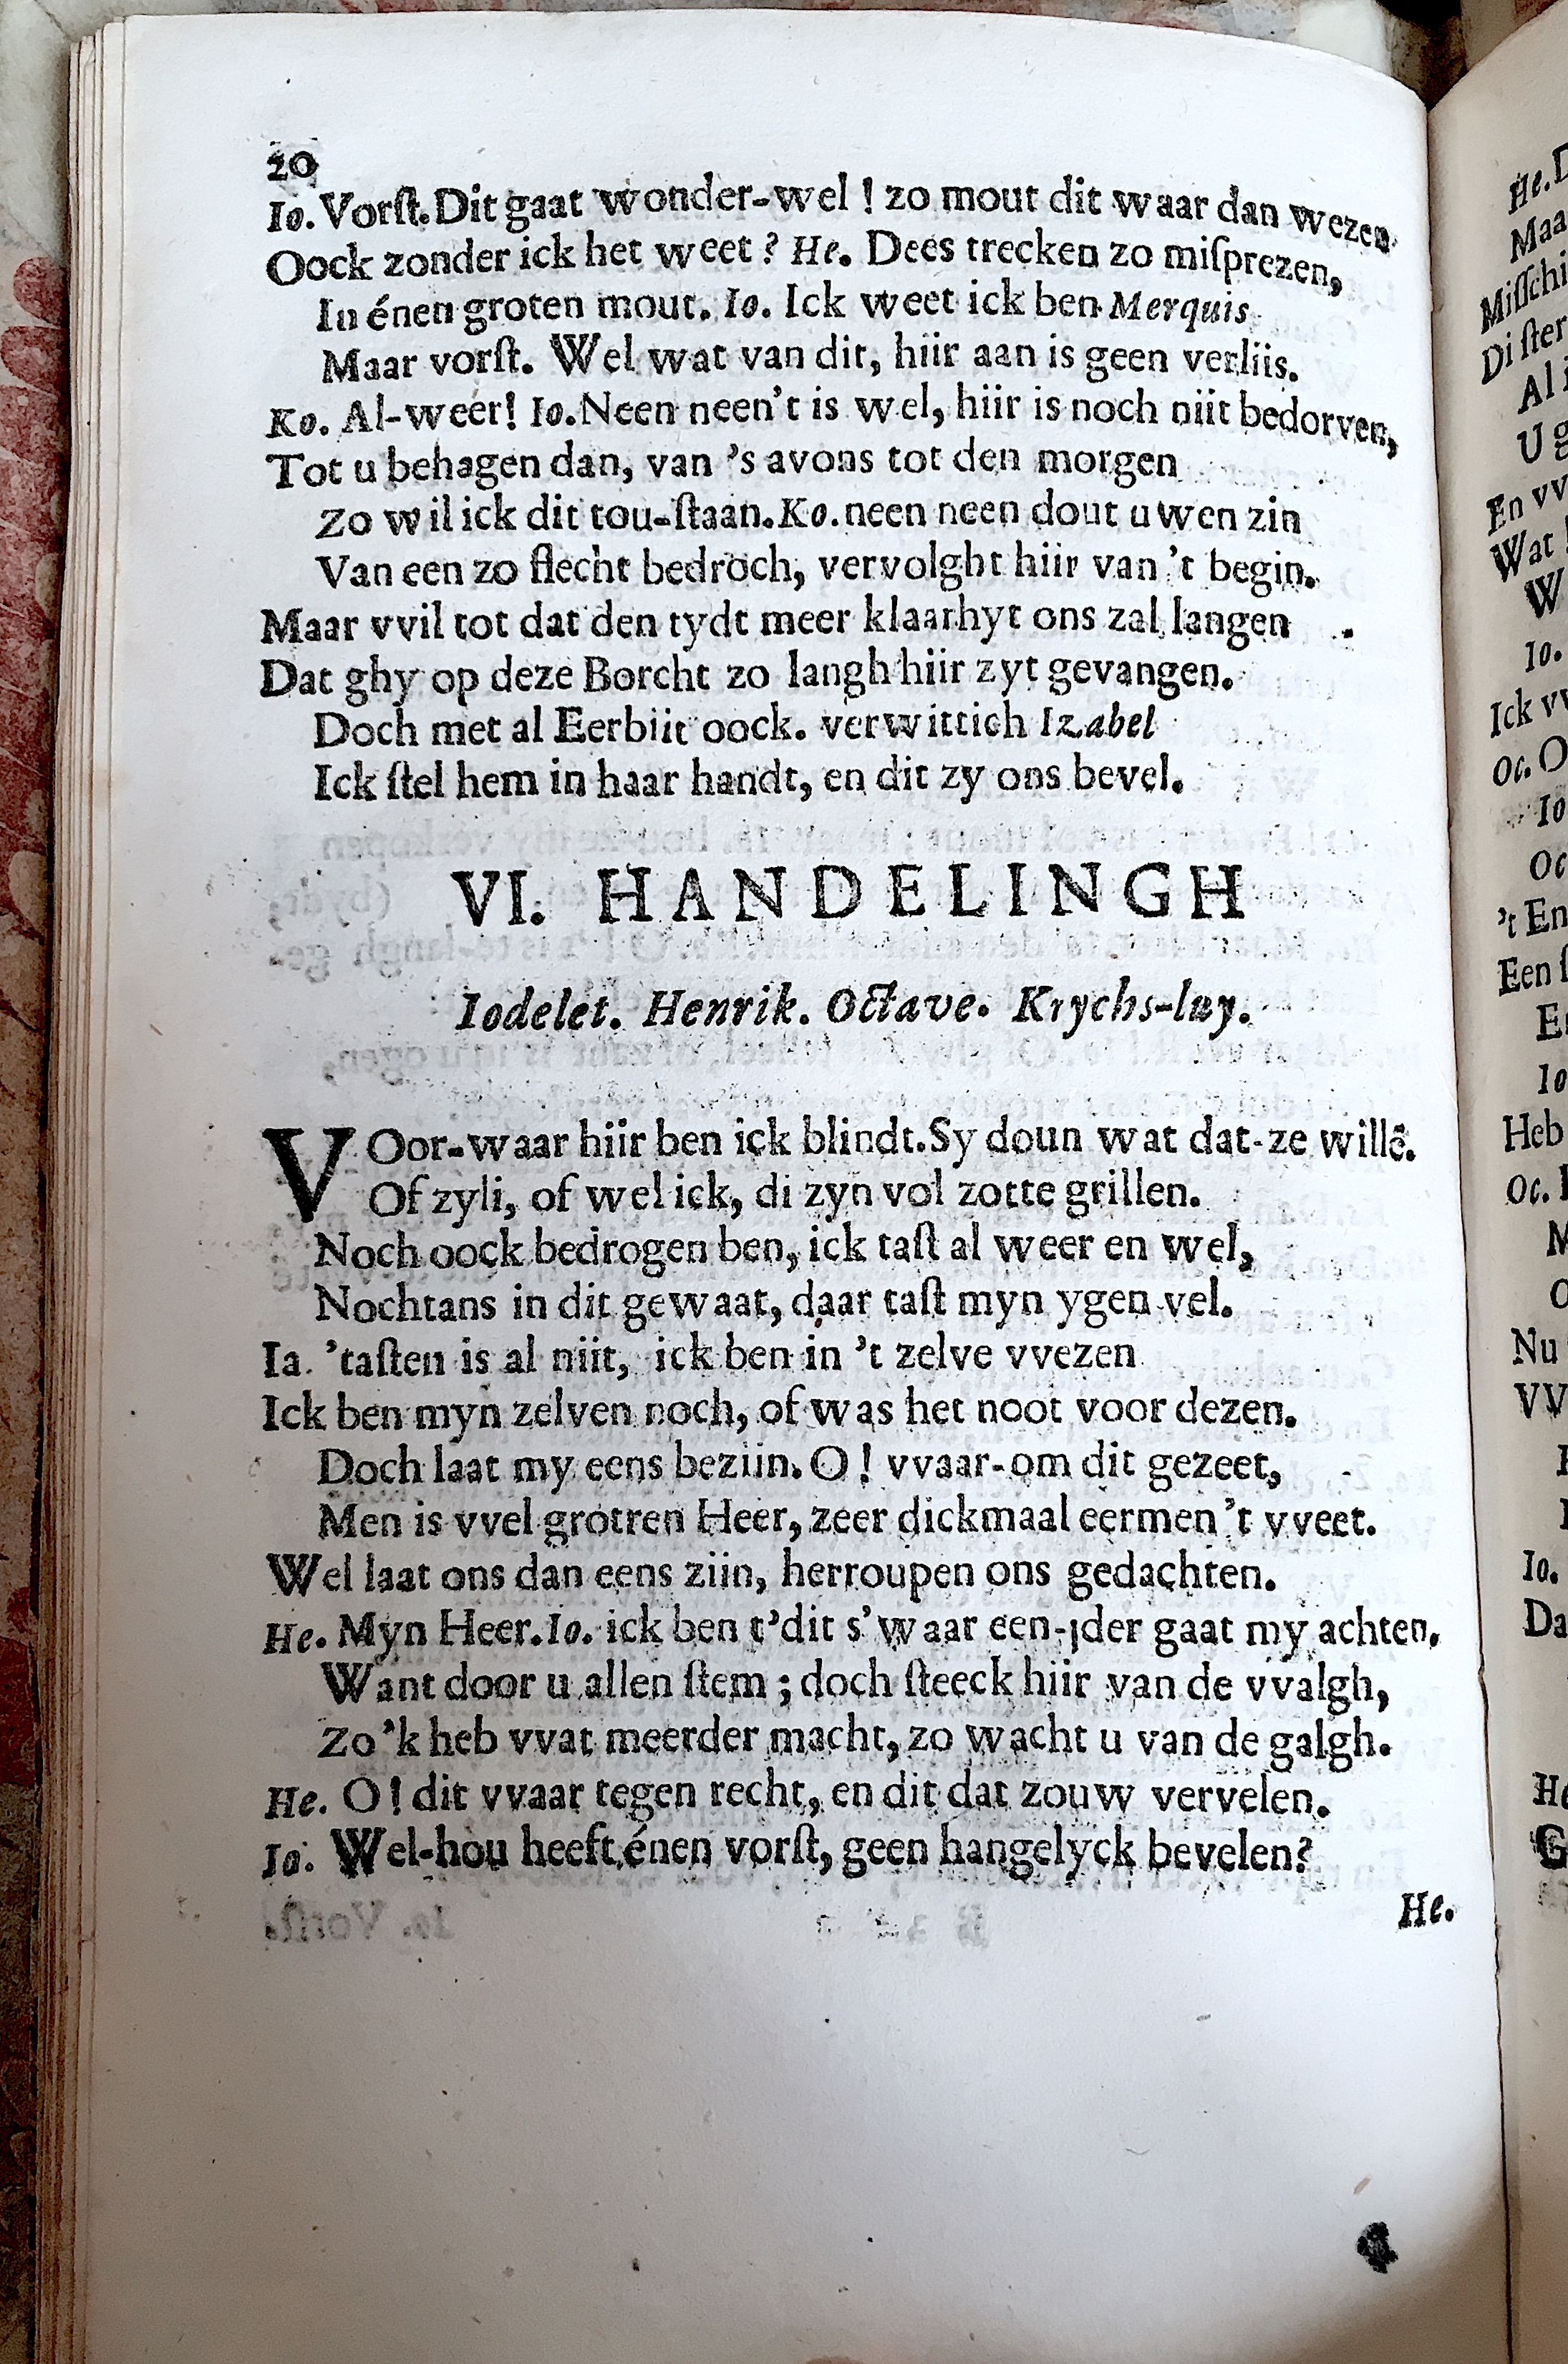 20
Io. Vorſt. Dit gaat wonder-wel ! zo mout dit waar dan wezen
Oock zonder ick het weet ? He. Dees trecken zo miſprezen,
In énen groten mout. Io. Ick weet ick ben Merquis
Maar vorſt. Wel wat van dit, hiir aan is geen verliis.
Ko. Al-weer! Io. Neen neen't is wel, hiir is noch niit bedorven,
Tot u behagen dan, van 's avons tot den morgen
Zo wil ick dit tou-ſtaan. Ko. neen neen dout uwen zin
Van een zo ſlecht bedroch, vervolght hiir van 't begin.
Maar vvil tot dat den tydt meer klaarhyt ons zal langen
Dat ghy op deze Borcht zo langh hiir zyt gevangen.
Doch met al Eerbiit oock. verwittich Izabel
Ick ſtel hem in haar handt, en dit zy ons bevel.
VI. HANDELINGH
Iodelet. Henrik. Octave. Krychs-luy.
VOor-waar hiir ben ick blindt. Sy doun wat dat-ze willē.
Of zyli, of wel ick, di zyn vol zotte grillen.
Noch oock bedrogen ben, ick taſt al weer en wel,
Nochtans in dit gewaat, daar taſt myn ygen vel.
Ia 'taſten is al niit, ick ben in 't zelve vvezen
Ick ben myn zelven noch, of was het noot voor dezen.
Doch laat my eens beziin. O ! vvaar-om dit gezeet,
Men is vvel grotren Heer, zeer dickmaal eermen 't vveet.
Wel laat ons dan eens ziin, herroupen ons gedachten.
He. Myn Heer. Io. ick ben t'dit s'waar een-jder gaat my achten,
Want door u allen ſtem ; doch ſteeck hiir van de vvalgh,
Zo 'k heb vvat meerder macht, zo wacht u van de galgh.
He. O ! dit vvaar tegen recht, en dit dat zouw vervelen.
Io. Wel-hou heeft énen vorſt, geen hangelyck bevelen?
He.
He. D
Maa
Miſſchi
Di ſter
Al
U g
En vv
Wat
W
Io.
Ick vv
Oc. O
Io
Oc
't En
Een ſ
E
Io
Heb
Oc.
Nu
VV
Io.
Da
He
G